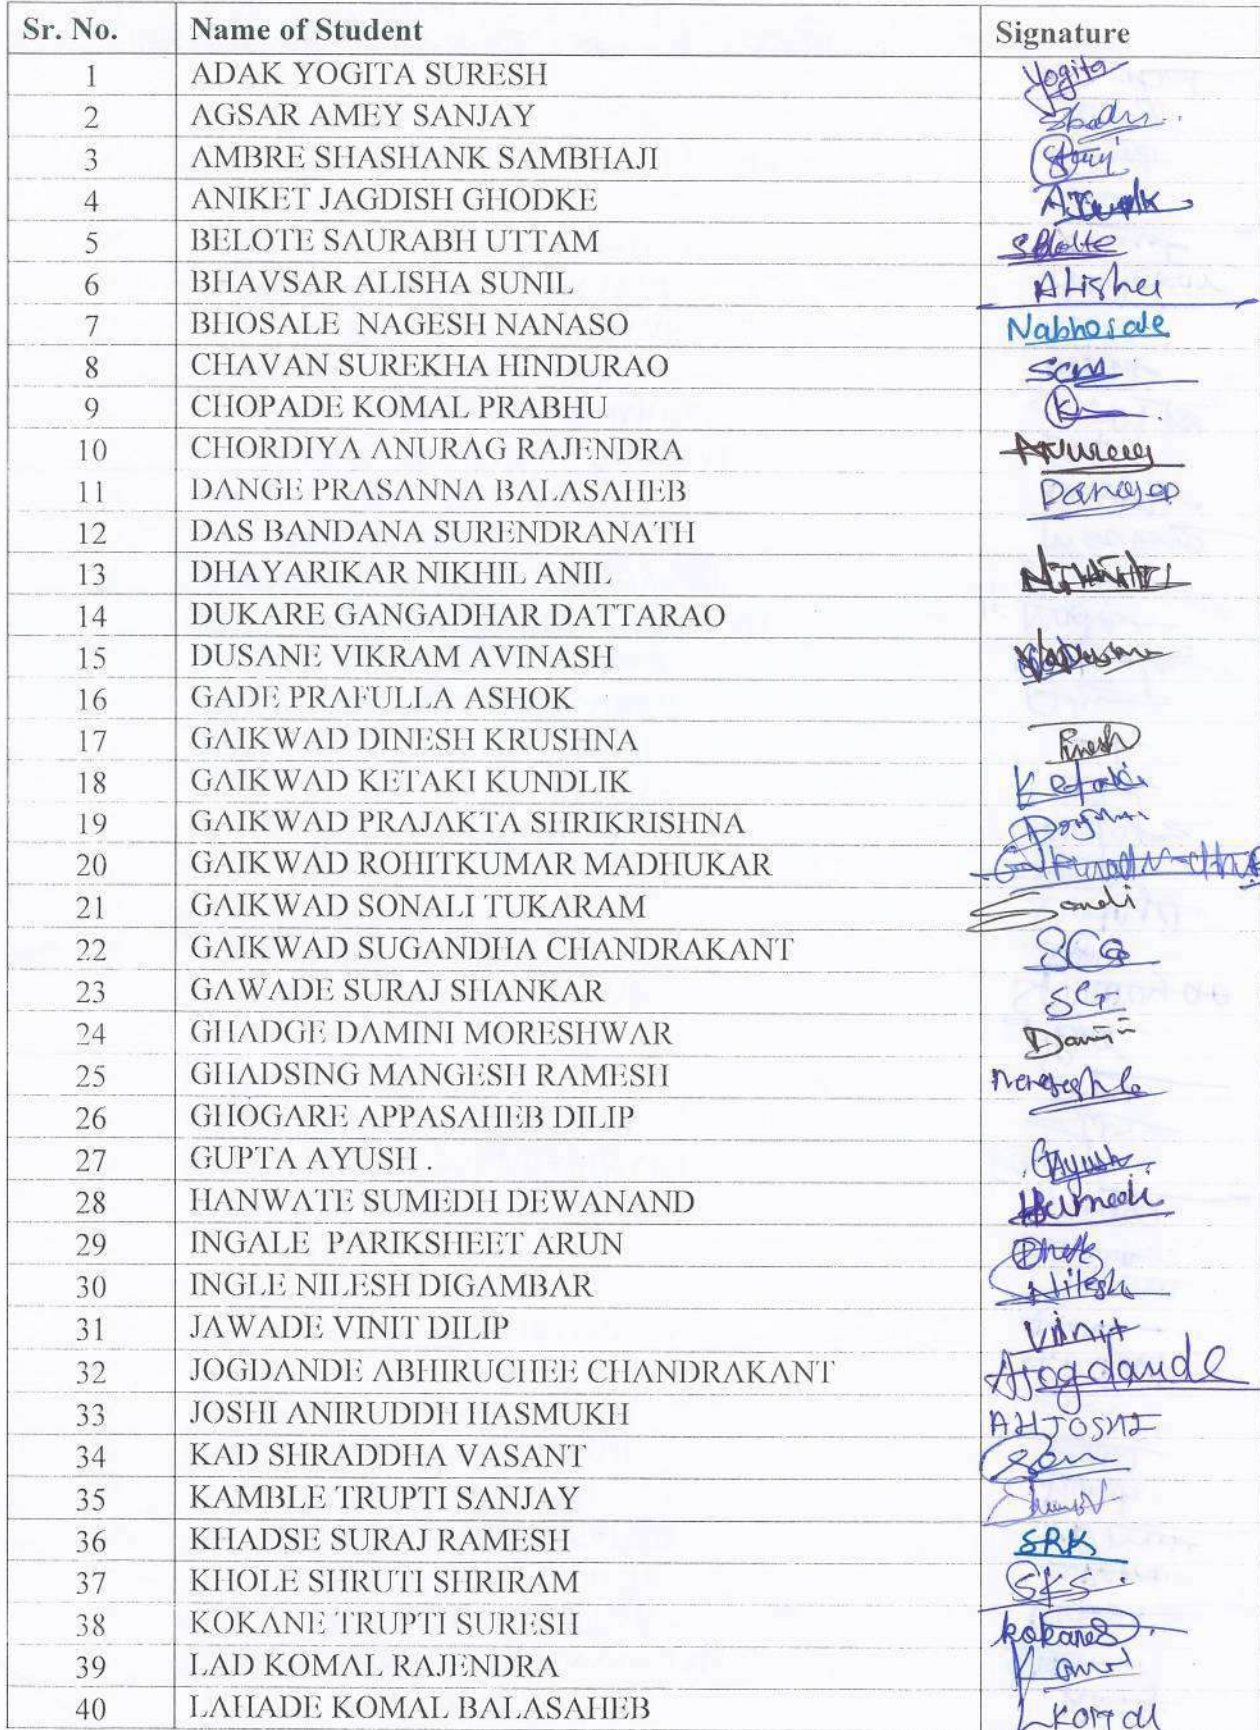 Sr. No. Name of Student Signature
1 ADAK YOGITA SURESH Yogita
2 AGSAR AMEY SANJAY
3 AMBRE SHASHANK SAMBHAJI
4 ANIKET JAGDISH GHODKE
5 BELOTE SAURABH UTTAM
6 BHAVSAR ALISHA SUNIL Alisha
7 BHOSALE NAGESH NANASO Nabhosale
8 CHAVAN SUREKHA HINDURAO
9 CHOPADE KOMAL PRABHU
10 CHORDIYA ANURAG RAJENDRA Anurag
11 DANGE PRASANNA BALASAHEB
12 DAS BANDANA SURENDRANATH
13 DHAYARIKAR NIKHIL ANIL
14 DUKARE GANGADHAR DATTARAO
15 DUSANE VIKRAM AVINASH
16 GADE PRAFULLA ASHOK
17 GAIKWAD DINESH KRUSHNA
18 GAIKWAD KETAKI KUNDLIK Ketaki
19 GAIKWAD PRAJAKTA SHRIKRISHNA
20 GAIKWAD ROHITKUMAR MADHUKAR
21 GAIKWAD SONALI TUKARAM Sonali
22 GAIKWAD SUGANDHA CHANDRAKANT SCG
23 GAWADE SURAJ SHANKAR
24 GHADGE DAMINI MORESHWAR
25 GHADSING MANGESH RAMESH
26 GHOGARE APPASAHEB DILIP
27 GUPTA AYUSH . GAyush
28 HANWATE SUMEDH DEWANAND
29 INGALE PARIKSHEET ARUN
30 INGLE NILESH DIGAMBAR Nilesh
31 JAWADE VINIT DILIP Vinit
32 JOGDANDE ABHIRUCHEE CHANDRAKANT AJogdande
33 JOSHI ANIRUDDH HASMUKH AHJOSHI
34 KAD SHRADDHA VASANT
35 KAMBLE TRUPTI SANJAY
36 KHADSE SURAJ RAMESH SRK
37 KHOLE SHRUTI SHRIRAM SKS
38 KOKANE TRUPTI SURESH
39 LAD KOMAL RAJENDRA Komal
40 LAHADE KOMAL BALASAHEB LKomal